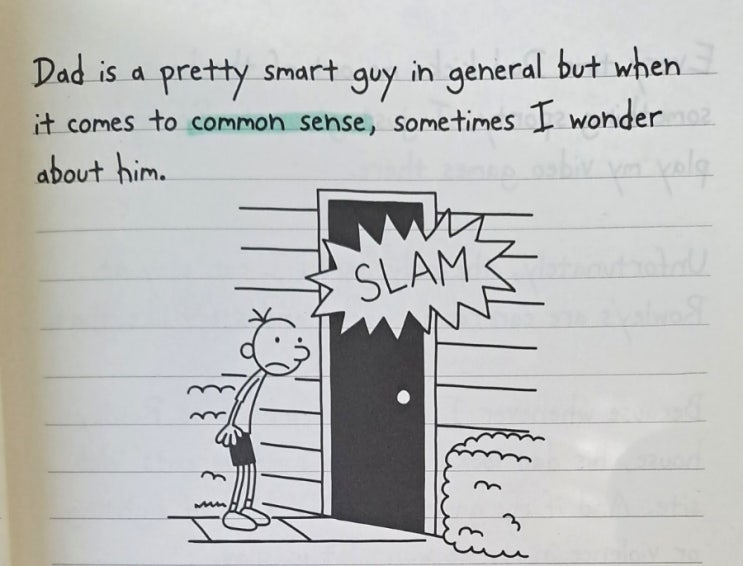 Dad is a pretty smart guy in general but when
it comes to common sense, sometimes I wonder
about him.
SLAM